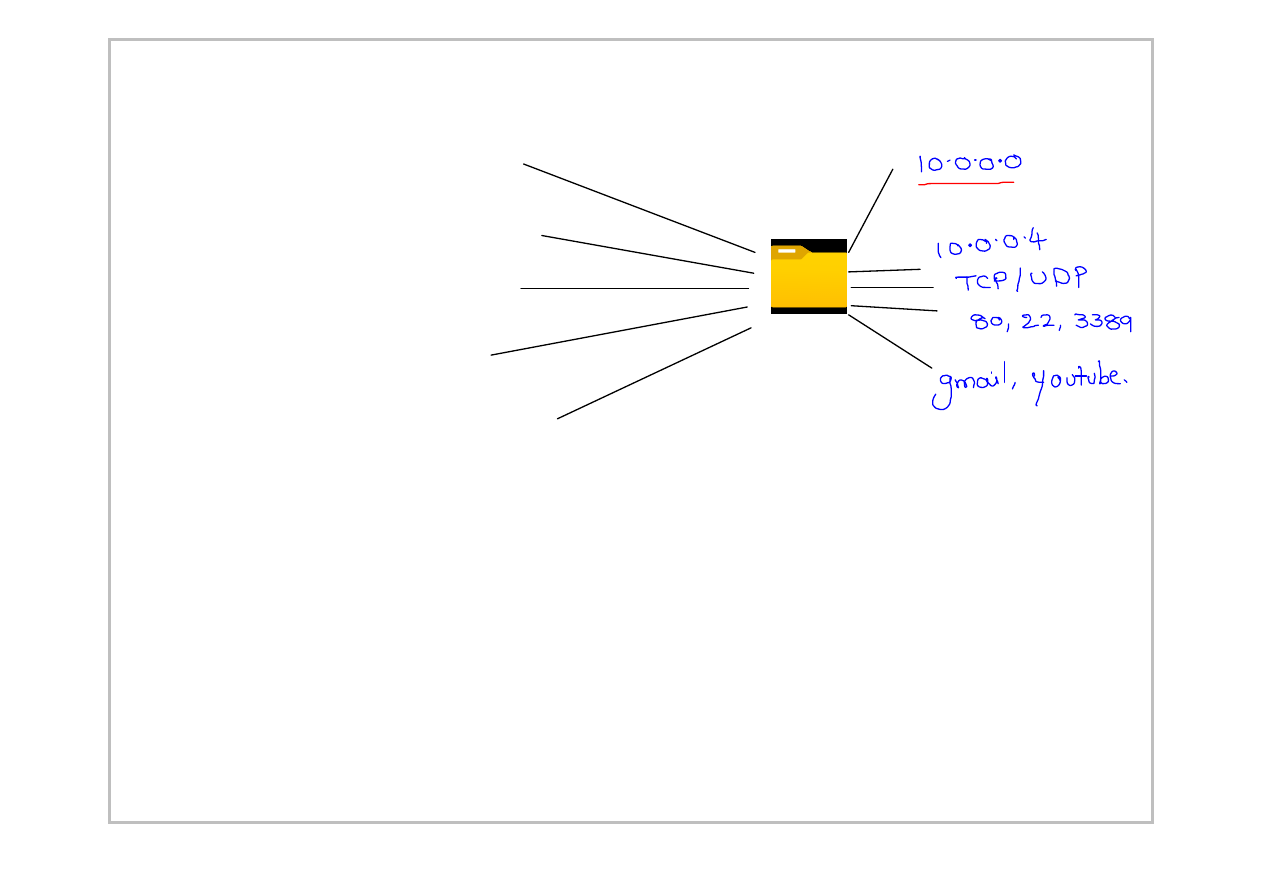 10.0.0.0
10.0.0.4
TCP/UDP
80, 22, 3389
gmail, youtube.